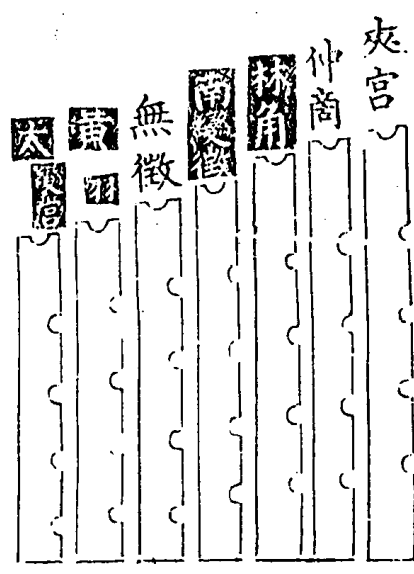 夾宮
仲商
林角
南變徵
無徵
黄羽
太變宮